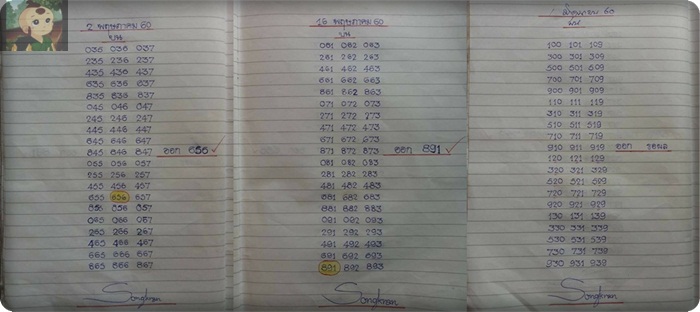 2 พฤษภาคม 60
บน
035 036 037
235 236 237
435 436 437
635 636 637
835 836 837
045 046 047
245 246 247
445 446 447
645 646 647
845 846 847 ออก 656
055 056 057
255 256 257
455 456 457
655 656 657
056 057
065 066 067
265 266 267
465 466 467
665 666 667
865 866 867
Songkran
16 พฤษภาคม 60
บน
061 062 063
261 262 263
461 462 463
661 662 663
861 862 863
071 072 073
271 272 273
471 472 473
671 672 673
871 872 873 ออก 891
081 082 083
281 282 283
481 482 483
681 682 683
881 882 883
091 092 093
291 292 293
491 492 493
691 692 693
891 892 893
Songkran
มิถุนายน 60
บน
100 101 109
300 301 309
500 501 509
700 701 709
900 901 909
110 111 119
310 311 319
510 511 519
710 711 719
910 911 919 ออก รอผล
120 121 129
320 321 329
520 521 529
720 721 729
920 921 929
130 131 139
330 331 339
530 531 539
730 731 739
930 931 939
Songkran